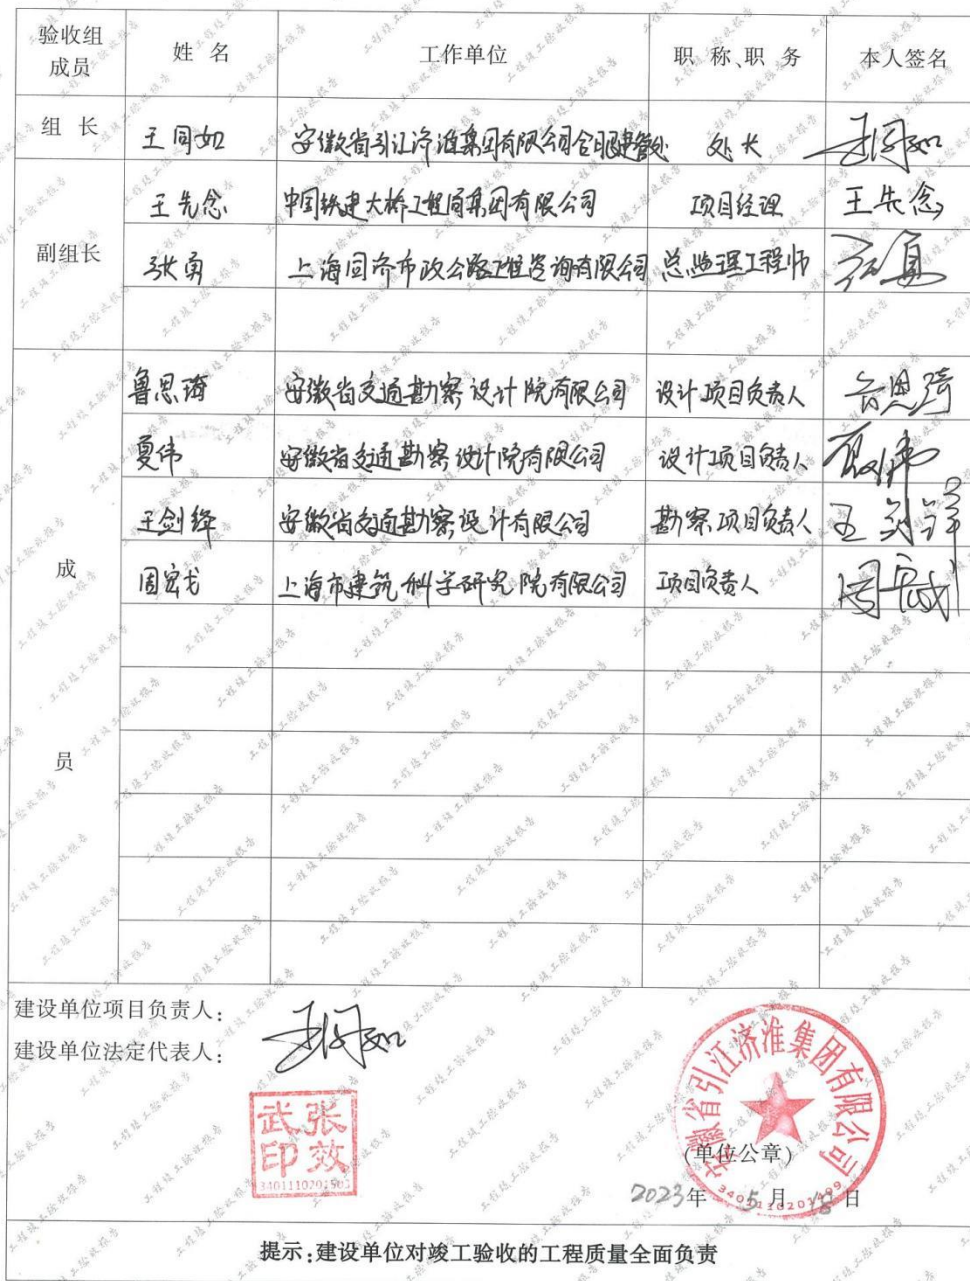 验收组成员 姓 名 工作单位 职 称、职 务 本人签名
组 长 王同如 安徽省引江济淮集团有限公司合肥建管处 处长 王同如
副组长 王先念 中国铁建大桥工程局集团有限公司 项目经理 王先念
张勇 上海同济市政公路工程咨询有限公司 总监理工程师 张勇
成员 鲁思琦 安徽省交通勘察设计院有限公司 设计项目负责人 鲁思琦
夏伟 安徽省交通勘察设计院有限公司 设计项目负责人 夏伟
王剑锋 安徽省交通勘察设计有限公司 勘察项目负责人 王剑锋
周宏戈 上海市建筑科学研究院有限公司 项目负责人
建设单位项目负责人: 王同如
建设单位法定代表人:
张效武印
3401110201503
安徽省引江济淮集团有限公司
(单位公章)
2023年 5月 18日
提示:建设单位对竣工验收的工程质量全面负责
工程竣工验收报告